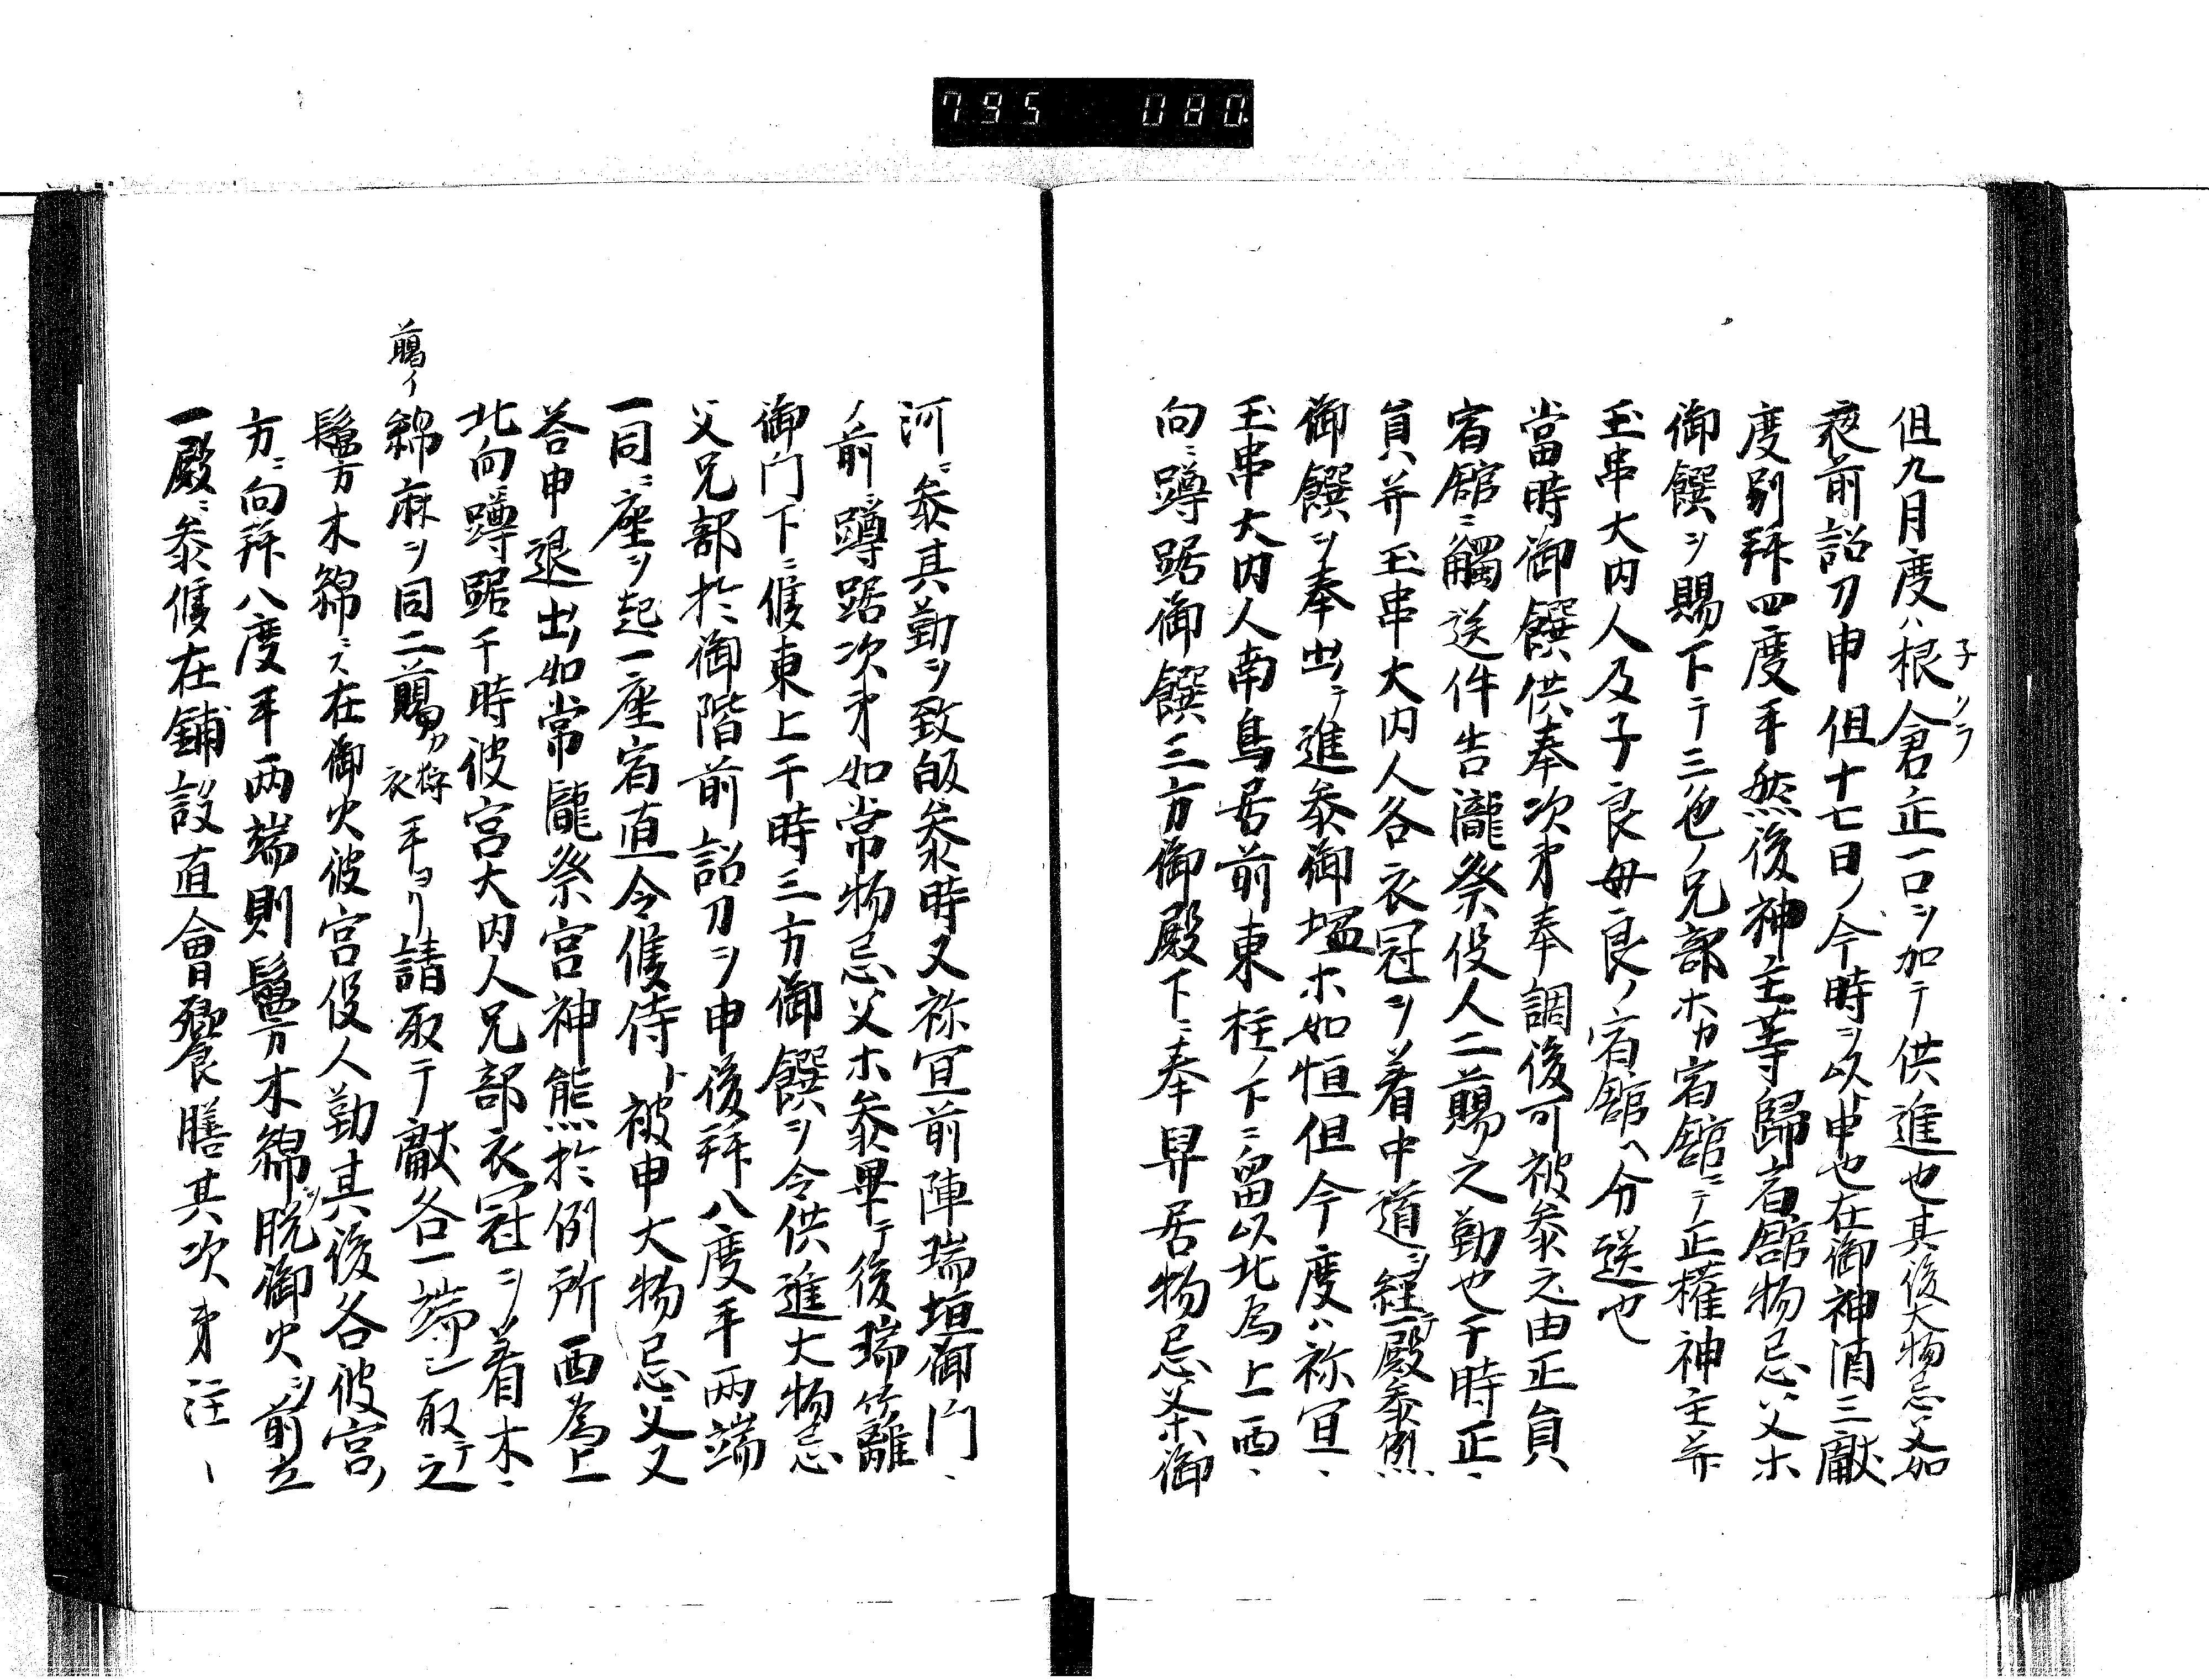 795 080
但九月度ハ根倉庄一口ヲ加テ供進也其後大物忌父如
子クラ
夜前詔刀申但十七日ノ今時ヲ以申也在御神酒三献
度別拜四度手然後神主等歸宿館物忌父ホ
御饌ヲ賜下テ三色ノ兄部ホカ宿館ニテ正權神主并
玉串大内人及子良母良ノ宿館ヘ分送也
當時御饌供奉次第奉調後可被参之由正員
宿舘ニ觸送件告瀧祭役人二萬之勤也于時正
員并玉串大内人各衣冠ヲ着中道ヲ經一殿参例
御饌ヲ奉出テ進参御塩ホ如恒但今度ハ祢宜
玉串大内人南鳥居前東柱ノ下ニ留以北為上西
向ニ蹲踞御饌三方御殿下ニ奉舁居物忌父ホ御
河ニ参其勤ヲ致皈参時又祢宜前陣瑞垣御門
ノ前ニ蹲踞次第如常物忌父ホ参畢テ後瑞籬
御門下ニ候東上于時三方御饌ヲ令供進大物忌
父兄部於御階前詔刀ヲ申後拜八度手両端
一同ニ座ヲ起一座宿直令候侍ト被申大物忌父又
荅申退出如常瀧祭宮神態於例所西為上
北向蹲踞于時彼宮大内人兄部衣冠ヲ着木
綿麻ヲ同二﨟 狩衣 手ヨリ請取テ献各一端取テ之
﨟イ
鬘方木綿ニス在御火彼宮役人勤其後各彼宮ノ
方ニ向拜八度手両端則鬘方木綿ヲ脱御火ヲ前立
一殿ニ参候在鋪設直會饗膳其次第注